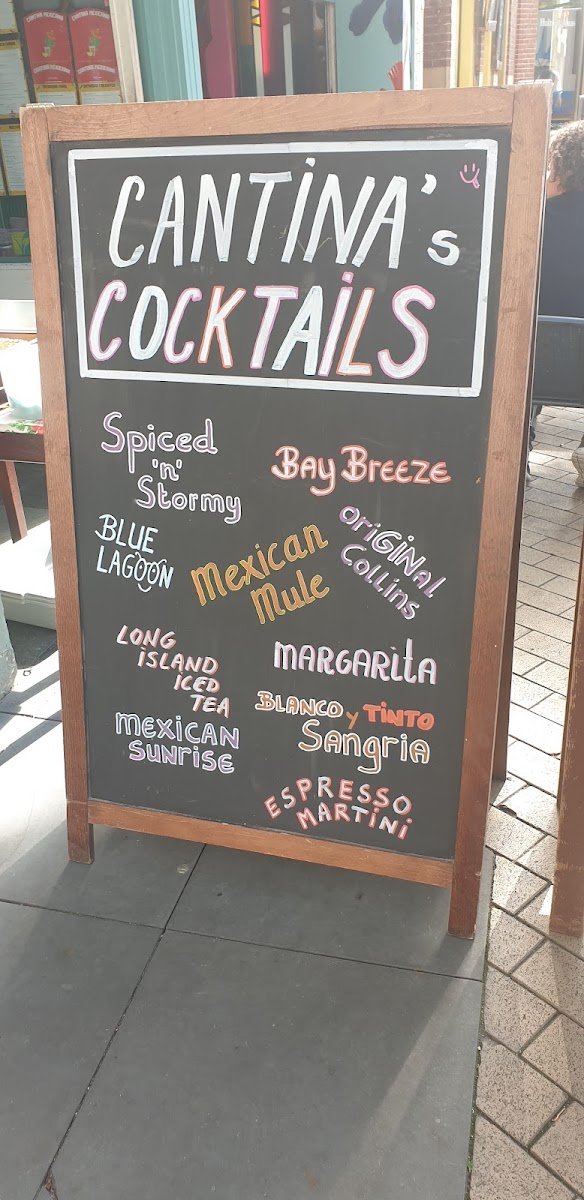 CANTINA's
COCKTAILS
Spiced
'n'
Stormy
Bay Breeze
BLUE
LAGOON
Mexican
Mule
OriGiNal
Collins
LONG
ISLAND
ICED
TEA
MARGARITA
BLANCO y TINTO
Sangria
MEXICAN
SUNRISE
ESPRESSO
MARTINI